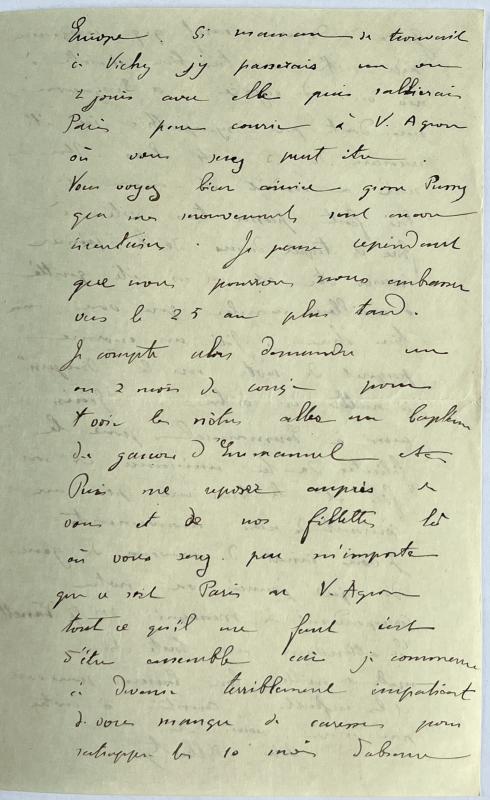 Europe. Si maman se trouvait
à Vichy j'y passerais un ou
2 jours avec elle puis rallierais
Paris pour courir à V. Agron
où vous serez peut être.
Vous voyez bien aimée grosse
que mes mouvements sont encore
incertains. Je pense cependant
que nous pourrons nous embrasser
vers le 25 au plus tard.
Je compte alors demander un
ou 2 mois de congé pour
voir les nôtres aller au baptême
du garçon d'Emmanuel etc
Puis me reposer auprès de
vous et de nos fillettes là
où vous serez. peu m'importe
que ce soit Paris ou V. Agron
tout ce qu'il me faut c'est
d'être ensemble car je commence
à devenir terriblement impatient
de vous manger de caresses pour
rattraper les 10 mois d'absence